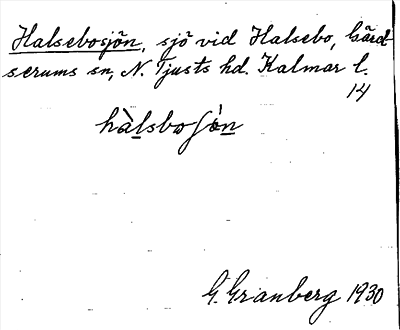 Halsebosjön, sjö vid Halsebo, Gärd-
serums sn, N. Tjusts hd. Kalmar l.
14
hàlsboʃö̀n
G. Granberg 1930